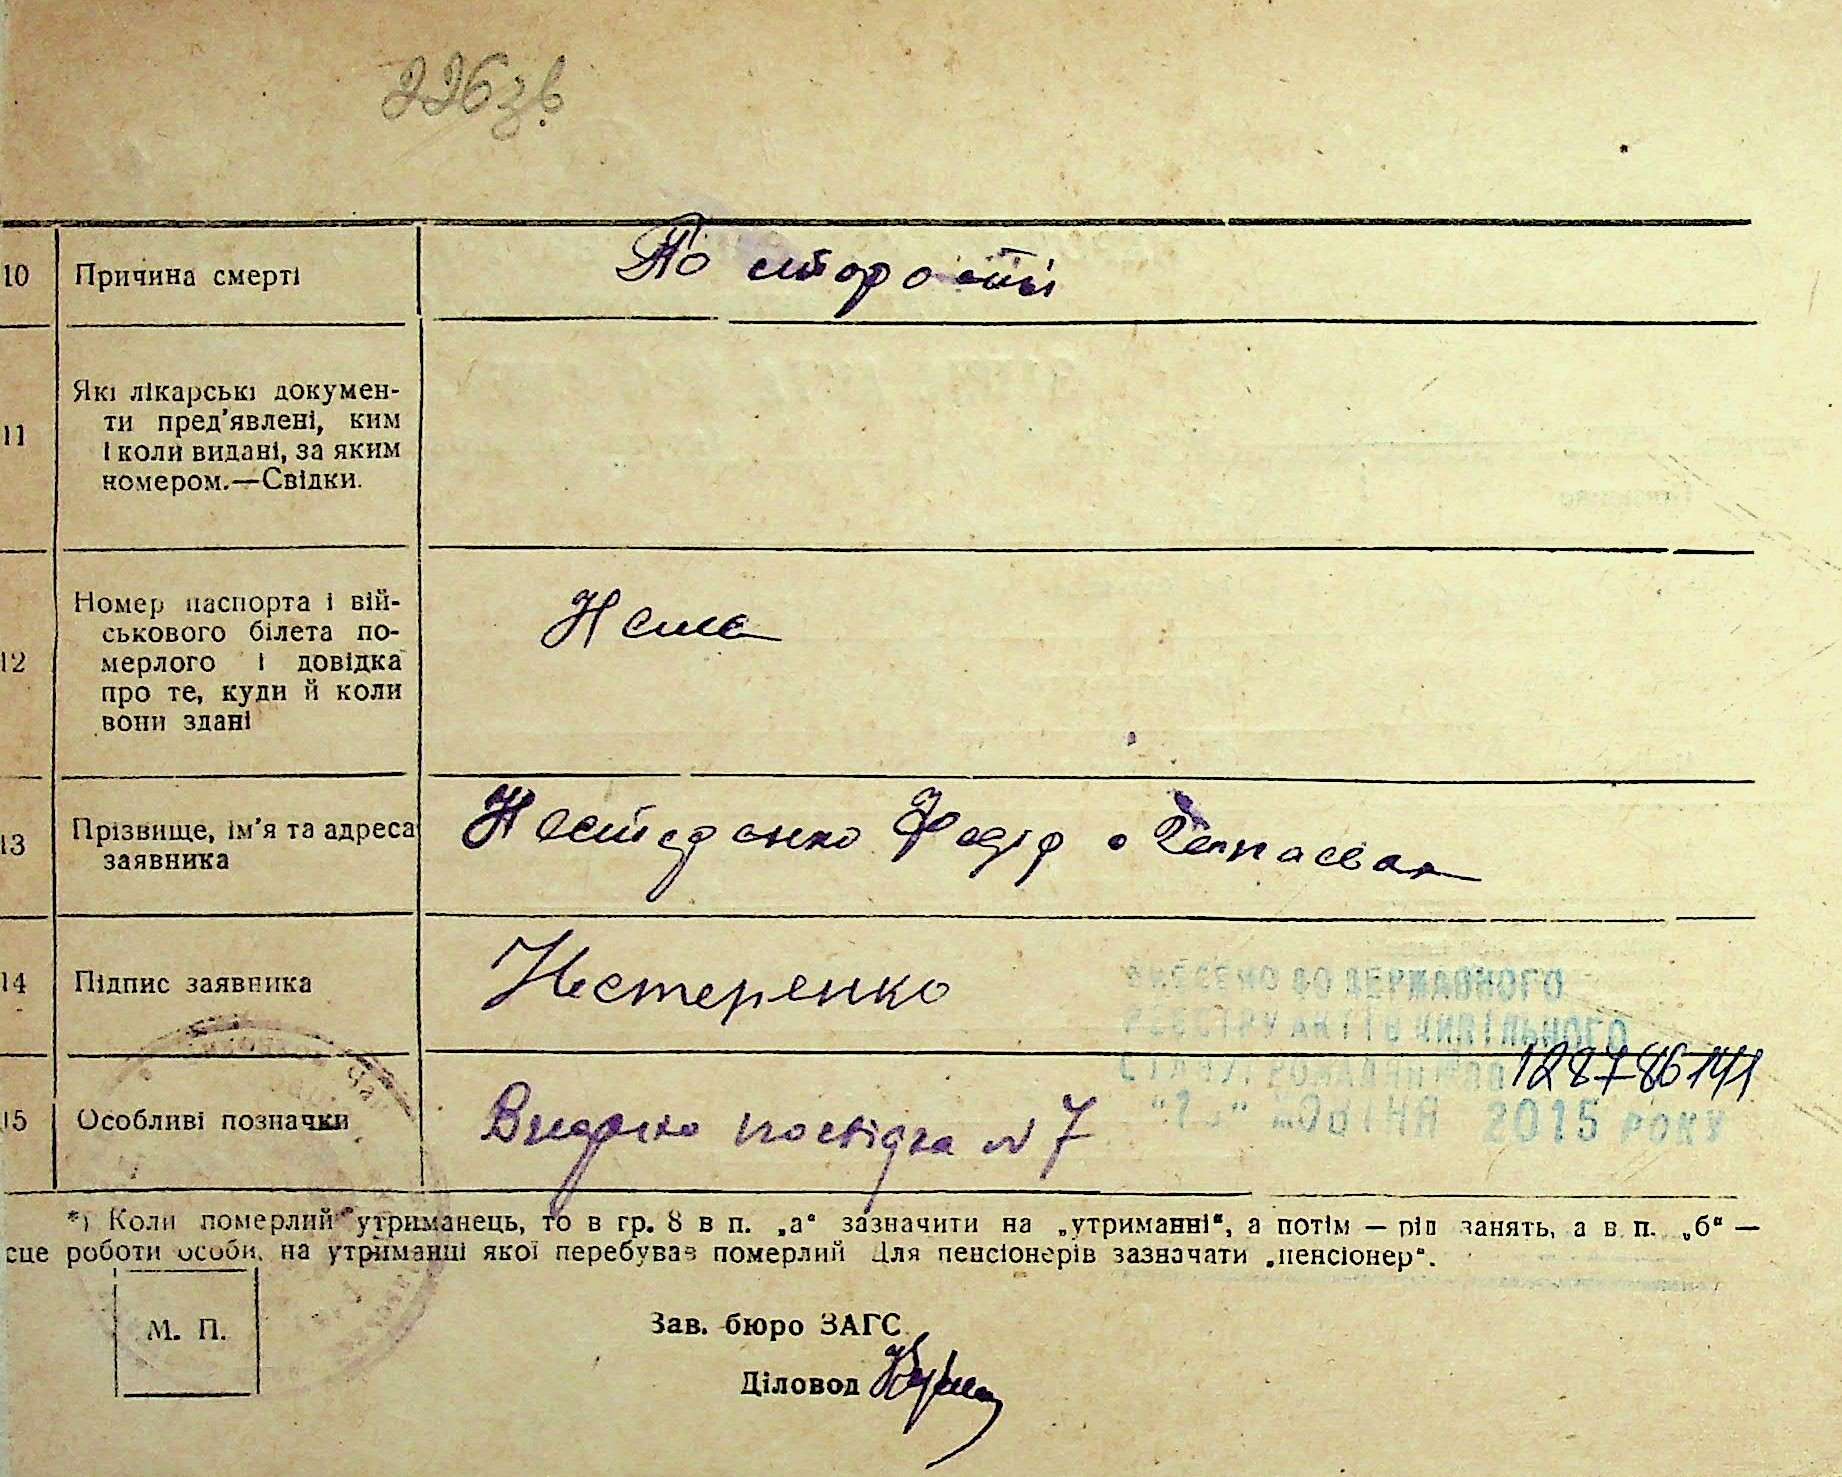 226 зв
10 Причина смерті По старості
Які лікарські докумен-
ти пред'явлені, ким
11 і коли видані, за яким
номером.—Свідки.
Номер паспорта і вій-
ськового білета по-
12 мерлого і довідка Нема
про те, куди й коли
вони здані
13 Прізвище, ім'я та адреса Нестеренко Федір
заявника
14 Підпис заявника Нестеренко
ВНЕСЕНО ДО ДЕРЖАВНОГО
РЕЄСТРУ АКТІВ ЦИВІЛЬНОГО
СТАНУ ГРОМАДЯН № 12878614
2015 РОКУ
15 Особливі позначки Видано посвідка № 7
*) Коли померлий утриманець, то в гр. 8 в п. „а“ зазначити на „утриманні“, а потім — рід занять, а в п. „б“ —
сце роботи особи, на утриманні якої перебував померлий Для пенсіонерів зазначати „пенсіонер“.
М. П.
Зав. бюро ЗАГС
Діловод